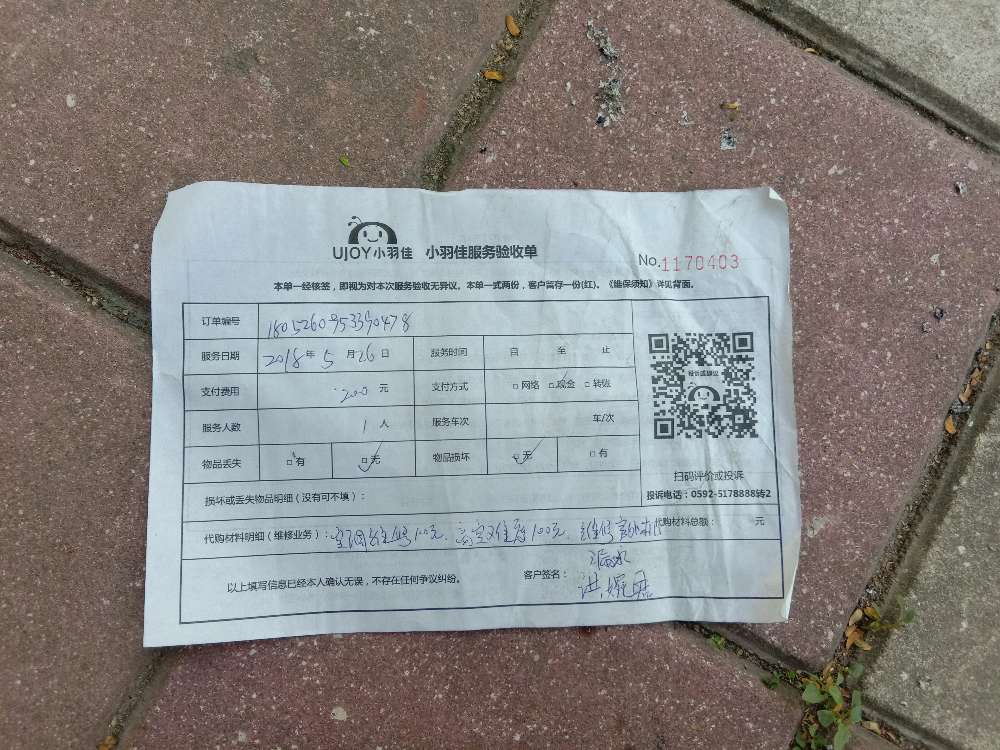 UJOY小羽佳 小羽佳服务验收单
No.1170403
本单一经核签，即视为对本次服务验收无异议。本单一式两份，客户留存一份(红)。《维保须知》详见背面。
订单编号
服务日期 2018年 5 月 26 日 服务时间 自 至 止
支付费用 200 元 支付方式 □网络 □现金 □转账
服务人数 1 人 服务车次 车/次
物品丢失 □有 □无 物品损坏 □无 □有
投诉或建议
扫码评价或投诉
投诉电话：0592-5178888转2
损坏或丢失物品明细（没有可不填）：
代购材料明细（维修业务）：空调维修100元、高空维修100元、维修 代购材料总额： 元
漏水
以上填写信息已经本人确认无误，不存在任何争议纠纷。 客户签名：